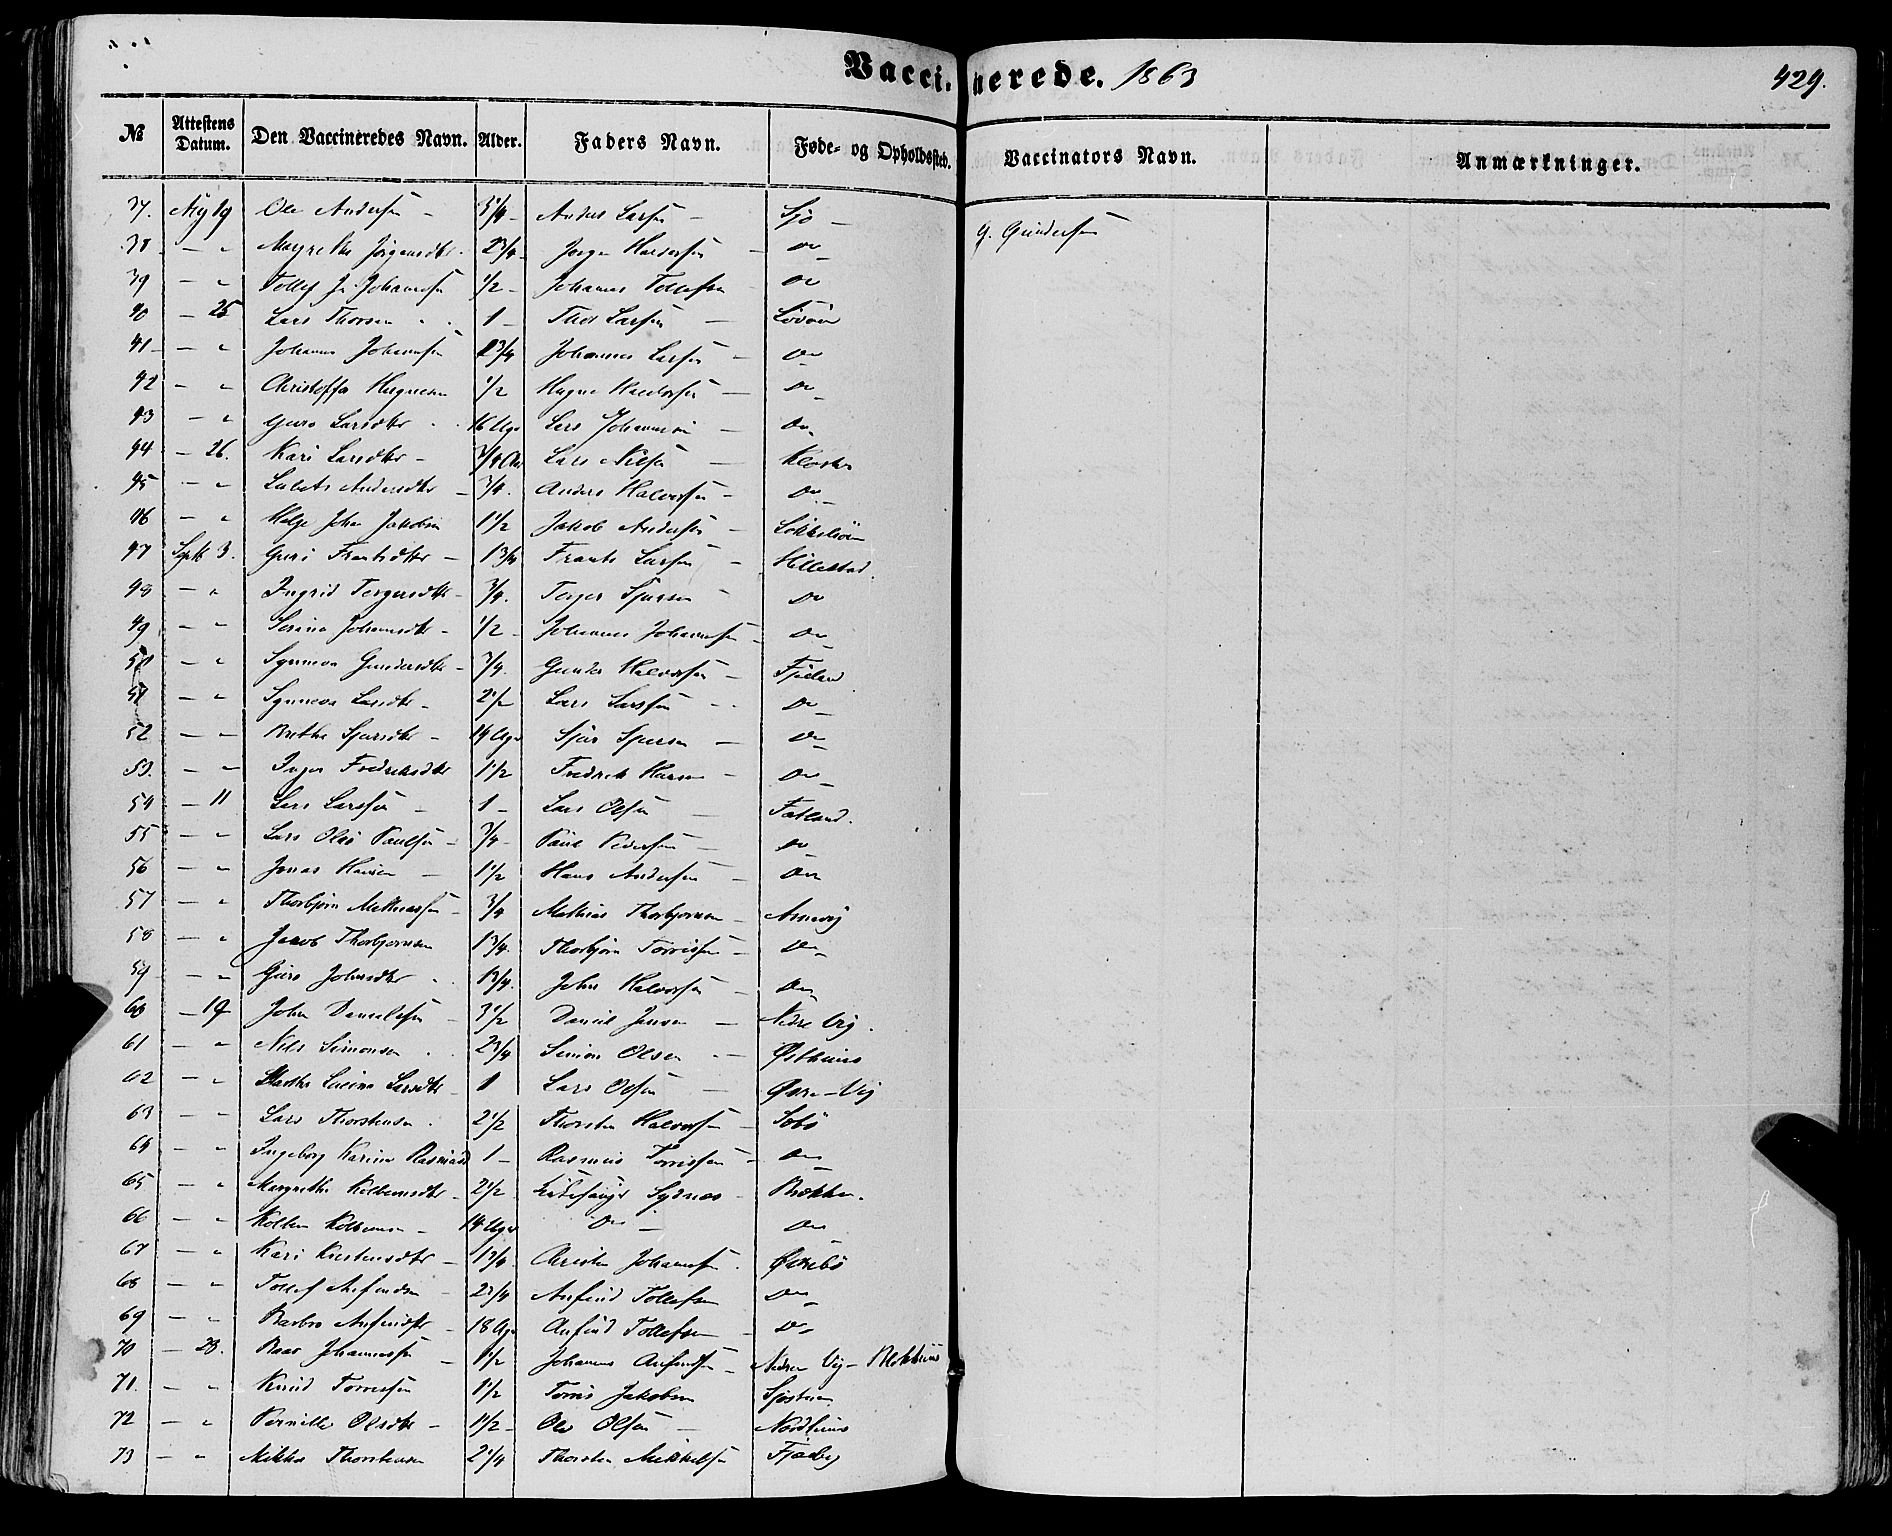 Vaccinerede. 1863
429.
№ Attestens Datum. Den Vaccineredes Navn. Alder. Faders Navn. Føde- og Opholdssted. Vaccinators Navn. Anmærkninger.
37. Ole Andersen - Anders Larsen - G. Gundersen
38 - " Margrethe Jørgensdtr. 2 3/4 - Jørgen -
39 - " Johannes Tollefsen
40 - 25 Lars Thorsen 1 - Thor Larsen -
41 - " Johannes Johannesen 2 3/4 Johannes Larsen - Do
42 - " 1/2 Hagne - Do
43 - " Guro Larsdtr 16 Uger Lars Johannesen - Do
44 - 26. Kari Larsdtr - 3/4 Aar Lars Nilsen - Kloster
45 - " Andersdtr - 3/4. Anders Halvorsen - Do
46 - " Helge Johan Jakobsen 1 1/2 Jakob Andersen -
47 Septr 3. Guri Frantsdtr - 1 3/4 Frants Larsen - Hillestad.
48 - " Ingrid Tergersdtr - 3/4. Terger Sjursen - Do
49 - " Serina Johannesdtr - 1/2 - Johannes Johannesen - Do
50 - " Synneva Gundersdtr - 3/4. Gunder Halvorsen - Fjæland
51 - " Synneva Larsdtr - 2 1/2 Lars Larsen Do
52 - " Brithe Sjursdtr - 14 Uger Sjur Sjursen - Do
53. - " Inger Fredriksdtr 1 1/2 Fredrik Hansen - Do
54 - 11 Lars Larsen - 1 - Lars Olsen - Fatland.
55 - " Lars Olai Paulsen - 3/4 - Paul Pedersen - Do
56 - " Jonas Hansen - 1 1/2 Hans Andersen - Do
57 - " Thorbjørn Mathiassen - 3/4 Mathias Thorbjørnsen - Arnevig
58 - " Jacob Thorbjørnsen 1 3/4. Thorbjørn Torrissen - Do
59 - " Guro Johnsdtr 1 3/4. John Halvorsen - Do
60 - 19 John Danielsen - 3 1/2 Daniel Jensen - Nedre Vig.
61 - " Nils Simonsen 2 3/4 Simon Olsen - Østhuus
62 - " Larsdtr - 1 Lars Olsen - Øvre-Vig
63 - " Lars Thorstensen 2 1/2 Thorsten Halvorsen -
64 - " Ingeborg Karine Rasmusd 1 - Rasmus Torrissen - Do
65 - " Margrethe Kolbensdtr - 2 1/2 Sydnes - Bækken.
66 - " Kolben Kolbensen - 14 Uger Do - Do
67 - " Kari Kristensdtr - 1 3/4 Christen Johannesen. Øvrebø
68 - " Tollef Anfindsen 2 3/4 Anfind Tollefsen Do
69 - " Barbro Anfindsdtr - 18 Uger Anfind Tollefsen - Do
70 - 23. Baar Johannessen - 1 1/2 Johannes Anfindsen - Nedre Vig -
71. - " Knud Torrissen 1 1/2 Torris Jakobsen
72 - " Pernille Olsdtr - 1 1/2 - Ole Olsen - Nordhuus
73 - " Mikkel Thorstensen 2 1/4 Thorsten Mikkelsen Fjæby